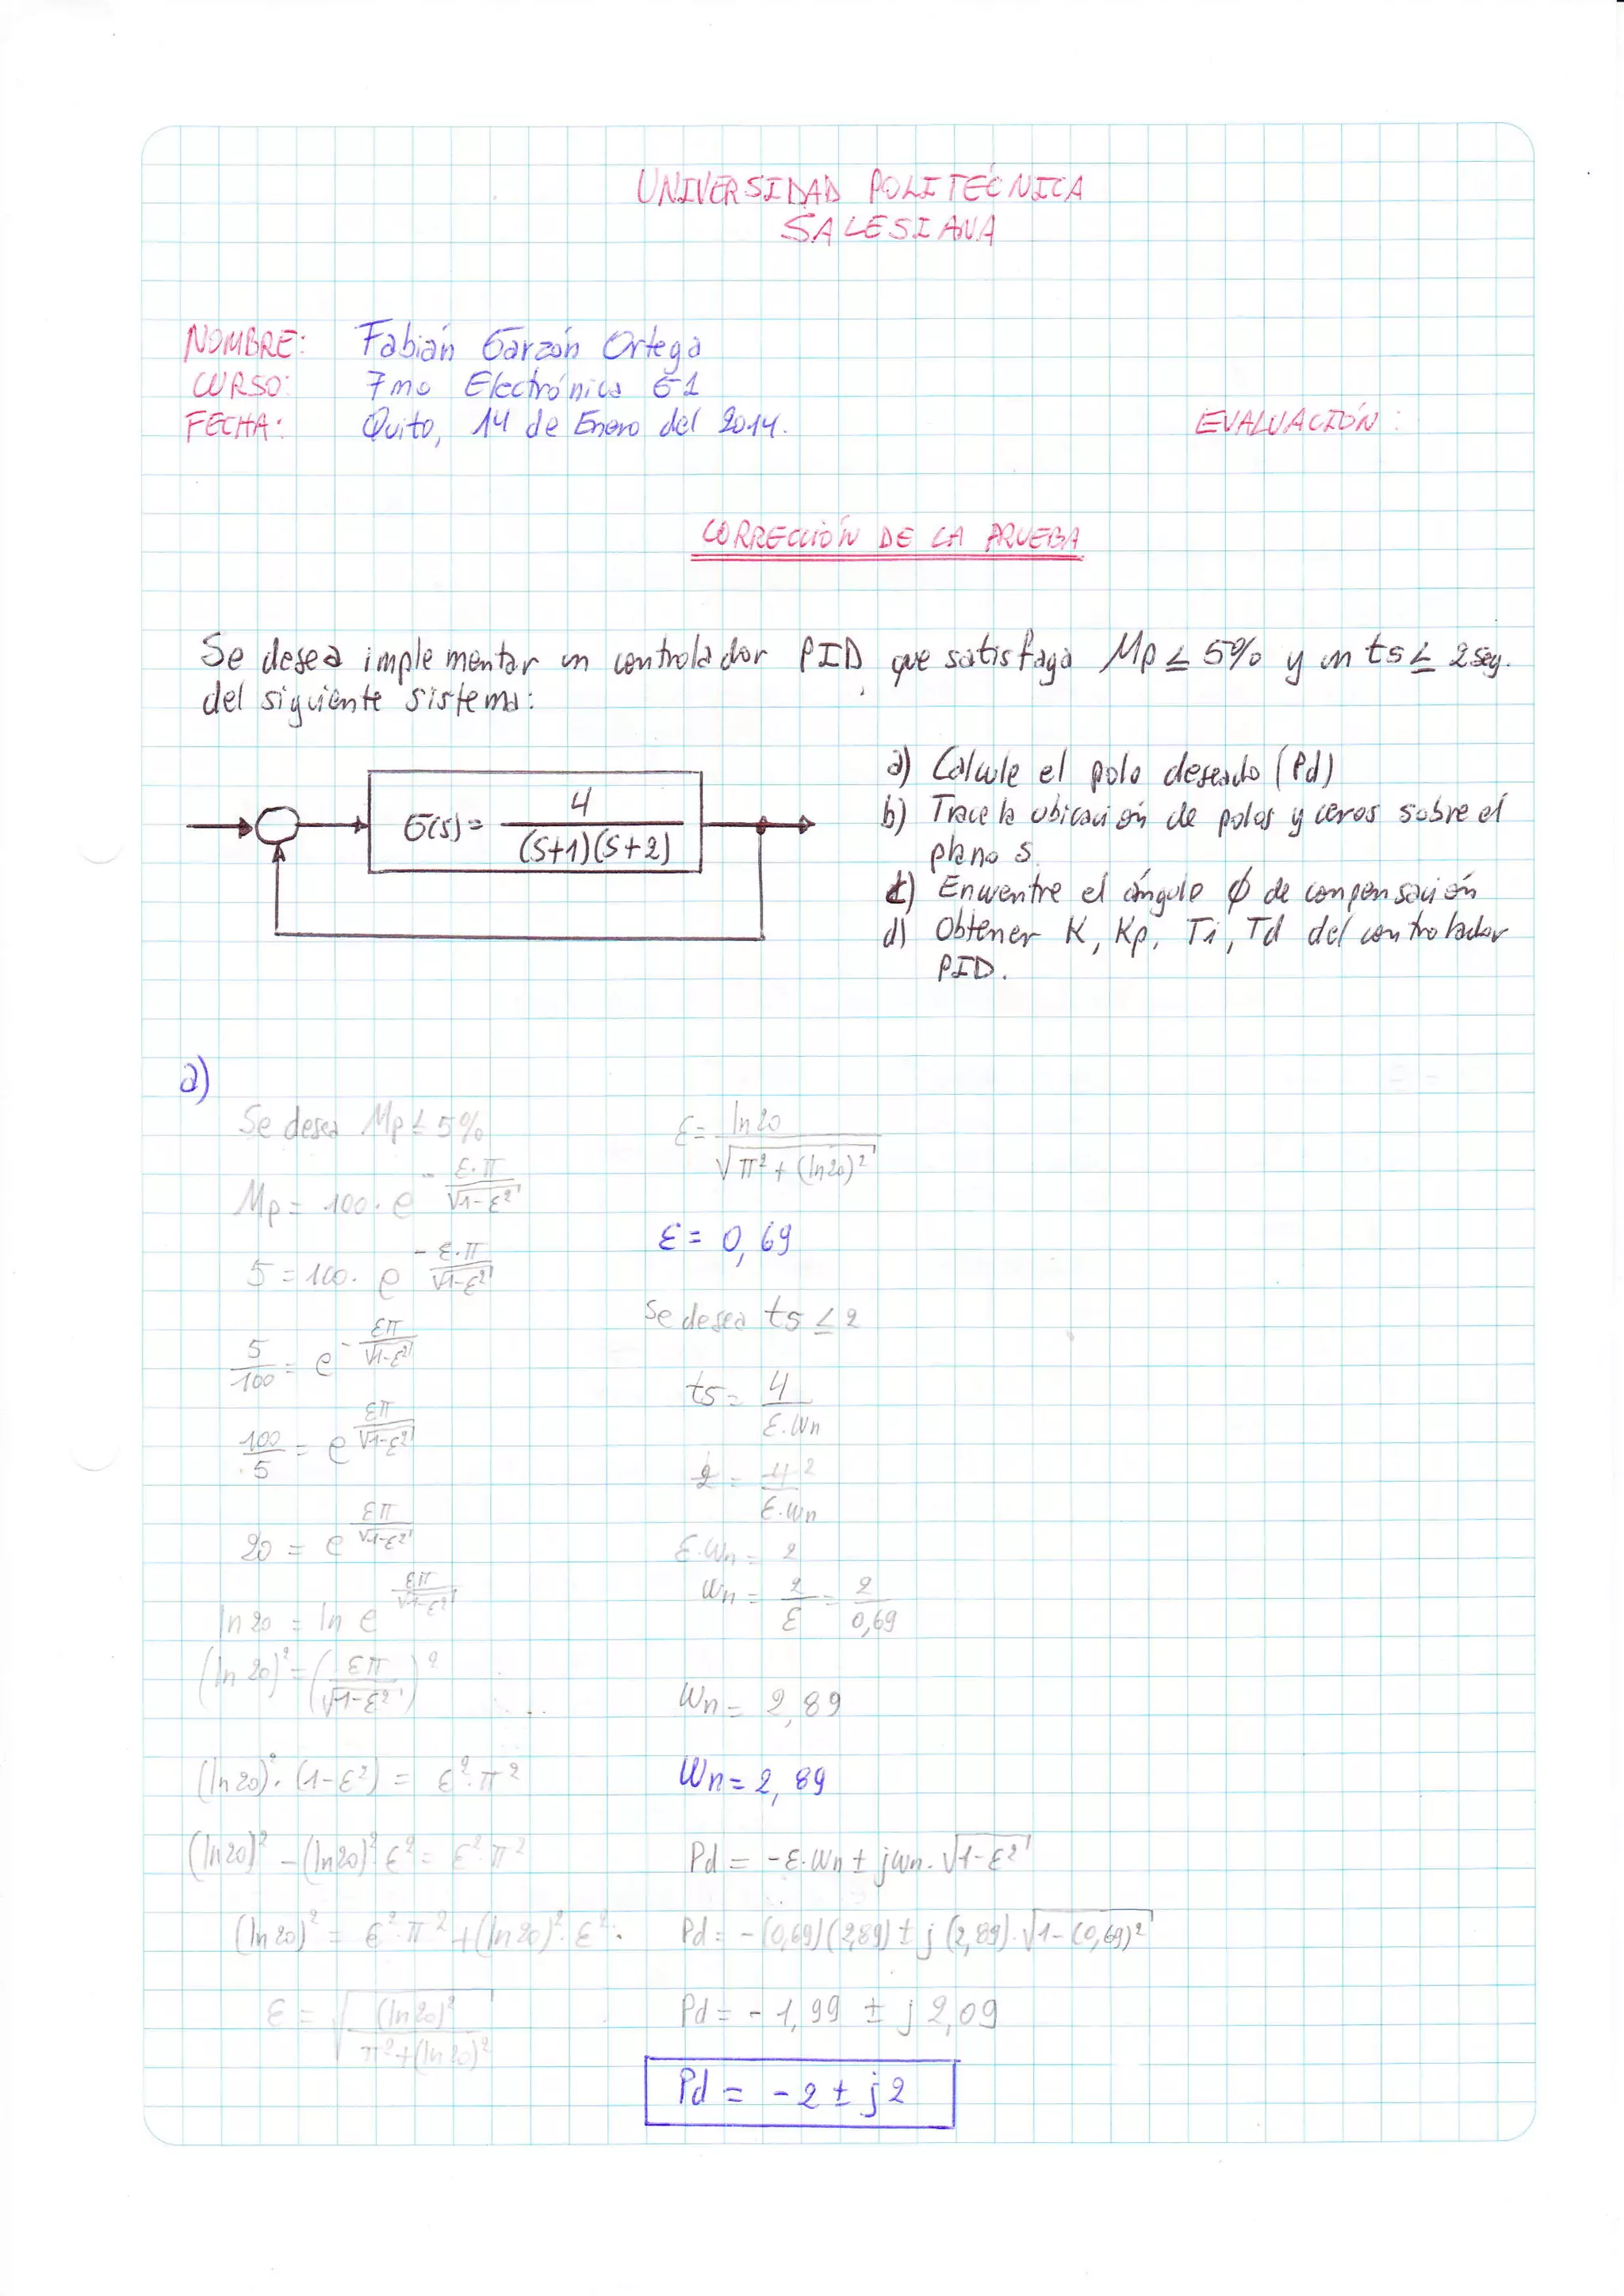 UNIVERSIDAD POLITÉCNICA
SALESIANA
NOMBRE: Fabián Garzón Ortega
CURSO: 7mo Electrónica G1
FECHA: Quito, 14 de Enero del 2014.
EVALUACIÓN:
CORRECCIÓN DE LA PRUEBA
Se desea implementar un controlador PID que satisfaga Mp ≤ 5% y un ts ≤ 2seg.
del siguiente sistema:
G(s) = 4 / (S+1)(S+2)
a) Calcule el polo deseado (Pd)
b) Trace la ubicación de polos y ceros sobre el
plano s.
c) Encuentre el ángulo ϕ de compensación
d) Obtener K, Kp, Ti, Td del controlador
PID.
a)
Se desea Mp ≤ 5%
Mp = 100 · e^(- ε·π / √(1-ε²))
5 = 100 · e^(- ε·π / √(1-ε²))
5/100 = e^(- επ / √(1-ε²))
100/5 = e^(επ / √(1-ε²))
20 = e^(επ / √(1-ε²))
ln 20 = ln e^(επ / √(1-ε²))
(ln 20)² = (επ / √(1-ε²))²
(ln 20)² · (1-ε²) = ε² · π²
(ln 20)² - (ln 20)² ε² = ε² · π²
(ln 20)² = ε² · π² + (ln 20)² · ε²
ε = √((ln 20)² / π² + (ln 20)²)
ε = ln 20 / √(π² + (ln 20)²)
ε = 0,69
Se desea ts ≤ 2
ts = 4 / ε.Wn
2 = 4 2 / ε.Wn
ε.Wn = 2
Wn = 2/ε = 2/0,69
Wn = 2,89
Wn = 2,89
Pd = -ε.Wn ± jWn.√(1-ε²)
Pd = -(0,69)(2,89) ± j (2,89).√(1-(0,69)²)
Pd = -1,99 ± j 2,09
Pd = -2 ± j2